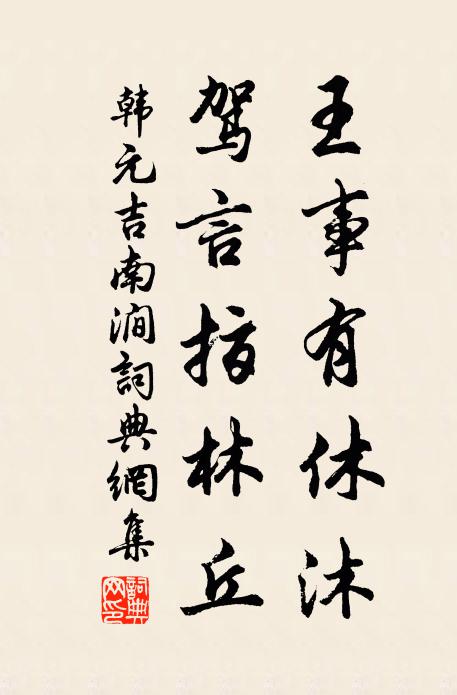 王事有休沐
驾言指林丘
韩元吉南涧詞典網集
詞典网印